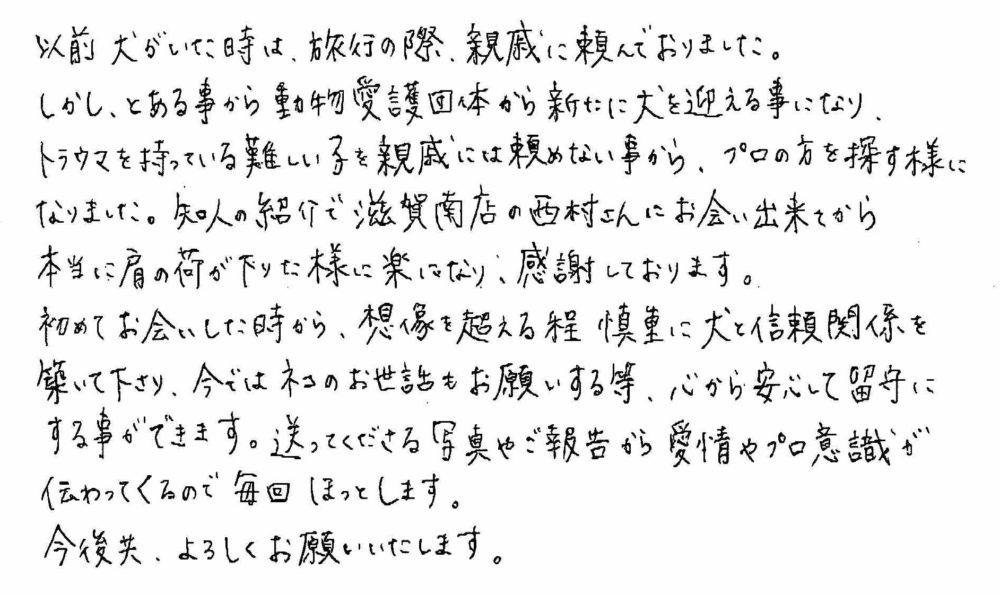 以前 犬がいた時は、旅行の際、親戚に頼んでおりました。
しかし、とある事から動物愛護団体から新たに犬を迎える事になり、
トラウマを持っている難しい子を親戚には頼めない事から、プロの方を探す様に
なりました。知人の紹介で滋賀南店の西村さんにお会い出来てから
本当に肩の荷が下りた様に楽になり、感謝しております。
初めてお会いした時から、想像を超える程 慎重に犬と信頼関係を
築いて下さり、今ではネコのお世話もお願いする等、心から安心して留守に
する事ができます。送ってくださる写真やご報告から愛情やプロ意識が
伝わってくるので毎回ほっとします。
今後共、よろしくお願いいたします。